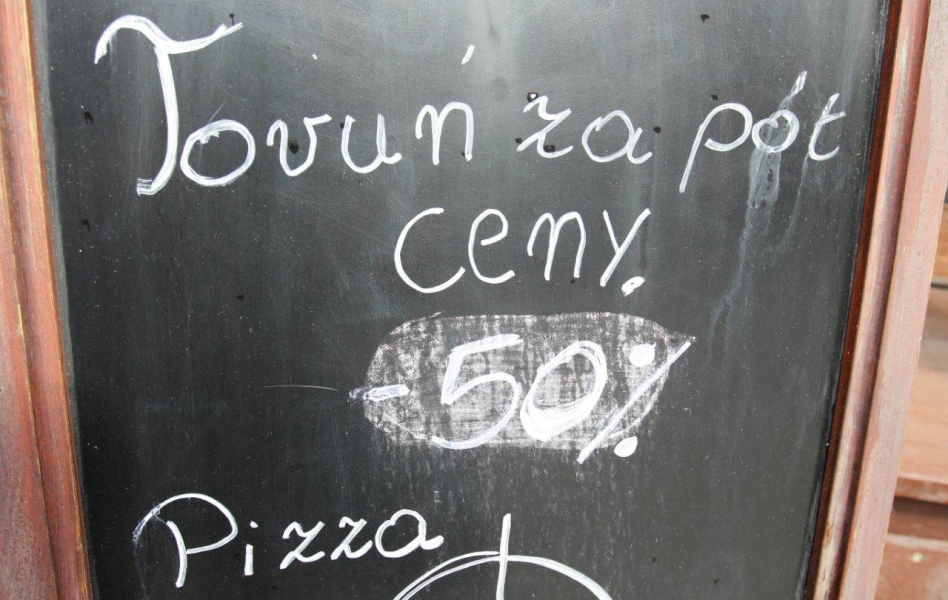 Toruń za pół
ceny.
- 50%
Pizza